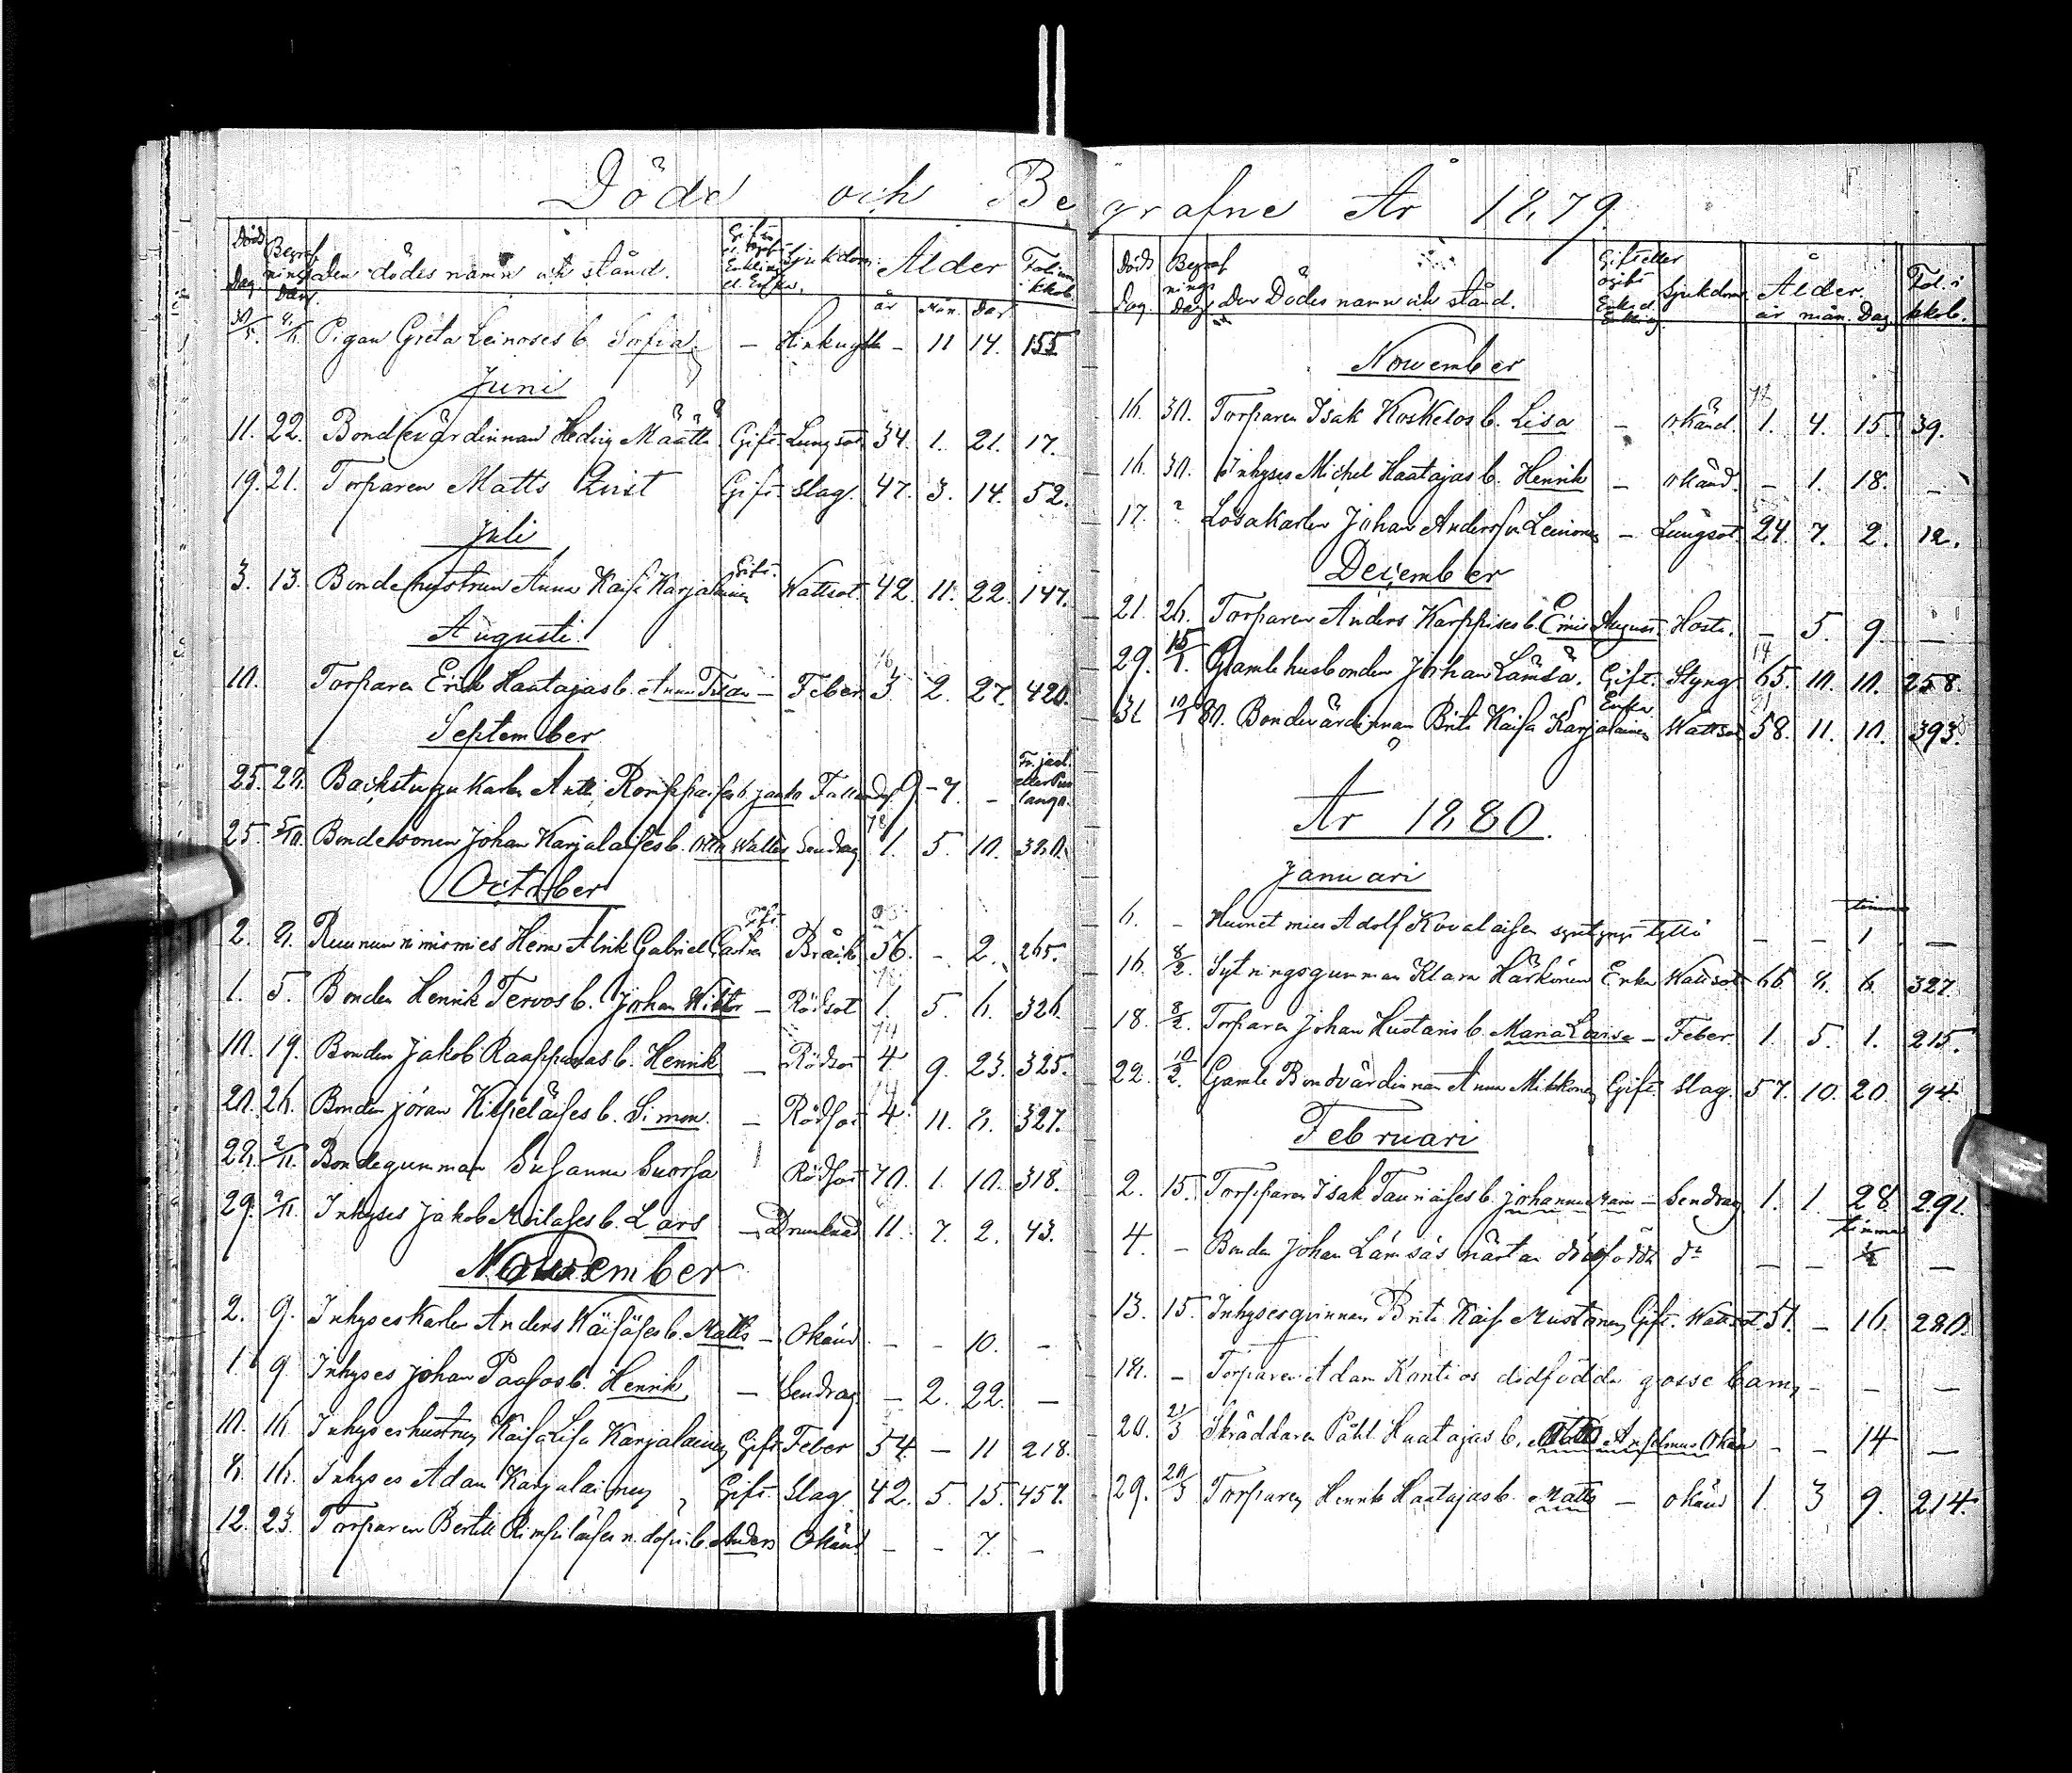 Döde och Be
Död Dag. Begrafnings Dag. Den dödes namn och stånd. Gift el. Ogift Enkling el. Enka. Sjukdom. Ålder Folium i kkob.
år Mån. Dar
30/5. 8/6. Pigan Greta Leinoses b. Sofia — Kinkhusta — 11 14. 155
Juni
11. 22. Bondevärdinnan Hedvig Määttä Gift. Lungsot 34. 1. 21. 17.
19. 21. Torparen Matts Qvist Gift. Slag. 47. 3. 14. 52.
Juli
3. 13. Bondehustrun Anna Kaisa Karjalainen Gift. Wattsot. 42. 11. 22. 147.
Augusti.
10. Torparen Erik Haatajas b. Anna — Feber 3 2. 27. 420.
September
25. 28. Backstugukarlen Antti b. 9 - 7. —
25. 5/10. Bondesonen Johan Karjalaises b. Otto Walter Sendrag 78 1. 5. 10. 380.
October
2. 8. Ruununnimismies Herra Alrik Gabriel Gift Bråck 56. - 2. 265.
1. 5. Bonden Henrik Tervos b. Johan Wiktor — Rödsot 1. 5. 6. 326.
10. 19. Bonden Jakob Raappanas b. Henrik — Rödsot 74 4 9. 23. 325.
20. 26. Bonden Jöran Kipeläises b. Simon. — Rödsot 4. 11. 8. 327.
28. 2/11. Bondegumman Susanna Suorsa Rödsot 70. 1. 10. 318.
29. 2/11. Inhyses Jakob Moilases b. Lars — Drunknad 11. 7. 2. 43.
November
2. 9. Inhyseskarlen Anders Wäisäses b. Matts — Okänd — - 10. -
1. 9. Inhyses Johan Paasos b. Henrik — Sendrag — 2. 22. —
10. 16. Inhyseshustrun Kaisa Lisa Karjalainen Gift. Feber 54 — 11 218.
8. 16. Inhyses Adam Karjalainen Gift. Slag. 42. 5. 15. 457.
12. 23. Torparen Bertill n. döpt b. Anders Okänd — - 7. —
grafne År 1879.
Döds Dag. Begrafnings Dag Den Dödes namn och stånd. Gift eller ogift Enka el. Enkling. Sjukdom Ålder. Fol. i kkob.
år mån. Dag.
November
16. 30. Torparen Isak Koskelos b. Lisa — okänd. 78 1. 4. 15. 39.
16. 30. Inhyses Michel Haatajas b. Henrik — okänd. — 1. 18. —
17. ? Lösakarlen Johan Andersson Leinonen — Lungsot. 24. 7. 2. 12.
December
21. 26. Torparen Anders Karppises b. August Hosta. — 5. 9. —
29. 15/1. Gamle husbonden Johan Lämsä. Gift. Styng 14 65. 10. 10. 258.
31 10/1 80. Bondevärdinnan Brita Kaisa Karjalainen Enka Wattsot 58. 11. 10. 393.
År 1880.
Januari
6. — Adolf tyttö — — timme 1 —
16. 8/2. Sytningsgumman Klara Härkönen Enka Wattsot 66 8. 6. 327.
18. 8/2. Torparen Johan b. Maria Lovisa — Feber 1. 5. 1. 215.
22. 10/2. Gamle Bondvärdinnan Anna Mikkonen Gift. Slag. 57. 10. 20 94
Februari
2. 15. Torpparen Isak b. Johanna Maria — Sendrag 1. 1. 28 291.
4. — Bonden Johan Lämsäs nästan dödfödda d:r — — timma 1/2 —
13. 15. Inhysesqvinnan Brita Kaisa Mustonen Gift. Wattsot 51. — 16. 280.
18. — Torparen Adam Kontios dödfödda gossebarn, — — —
20. 21/3 Skräddaren Påhl Haatajas b. Anselmus Okänd — — 14 —
29. 20/3 Torparen Henrik Haatajas b. Matts — okänd 1. 3 9. 214.